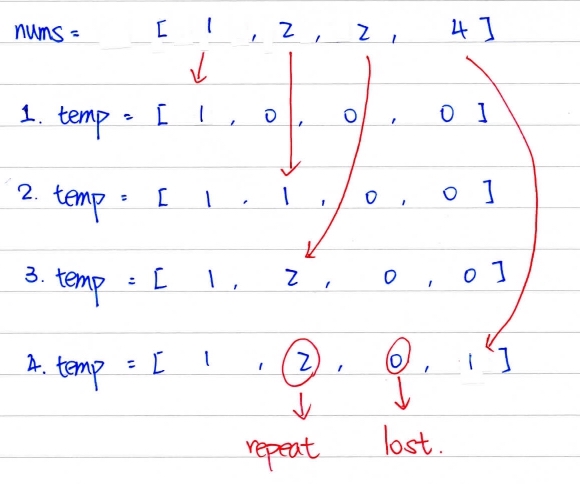 nums = [ 1 , 2 , 2 , 4 ]
1. temp = [ 1 , 0 , 0 , 0 ]
2. temp = [ 1 , 1 , 0 , 0 ]
3. temp = [ 1 , 2 , 0 , 0 ]
4. temp = [ 1 , 2 , 0 , 1 ]
repeat lost.